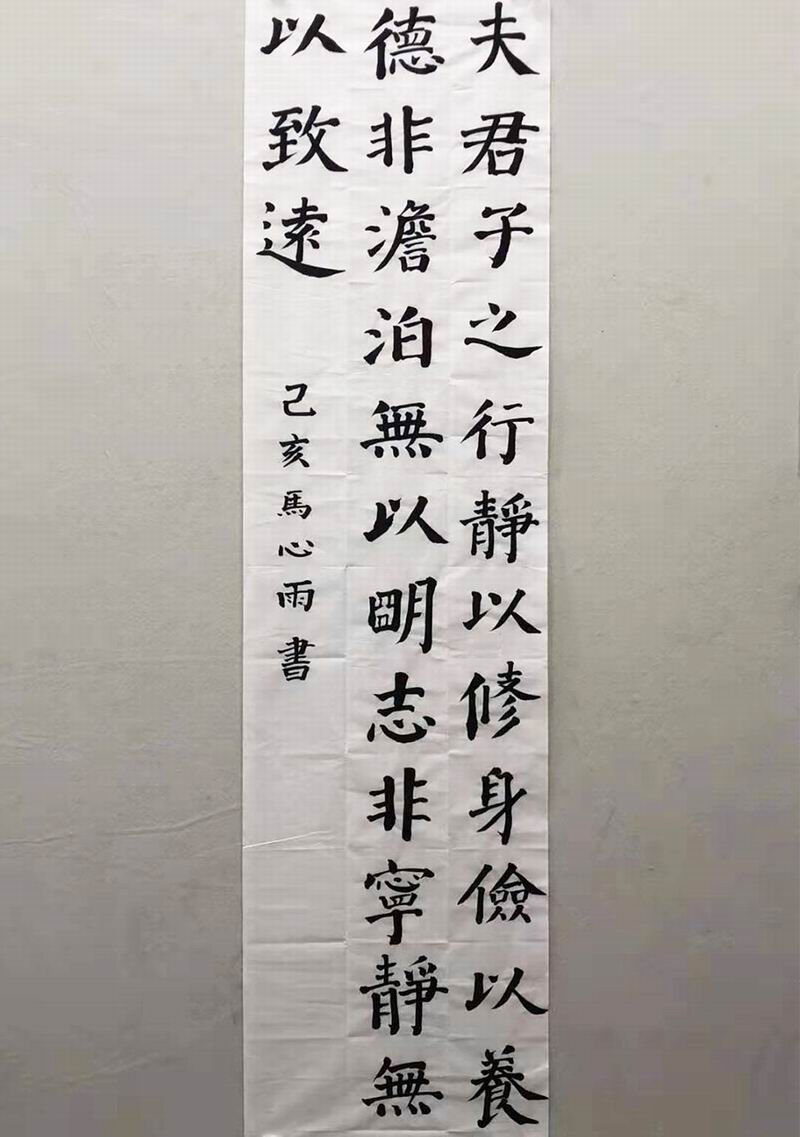 夫君子之行靜以修身儉以養
德非澹泊無以明志非寧靜無
以致遠
己亥馬心雨書